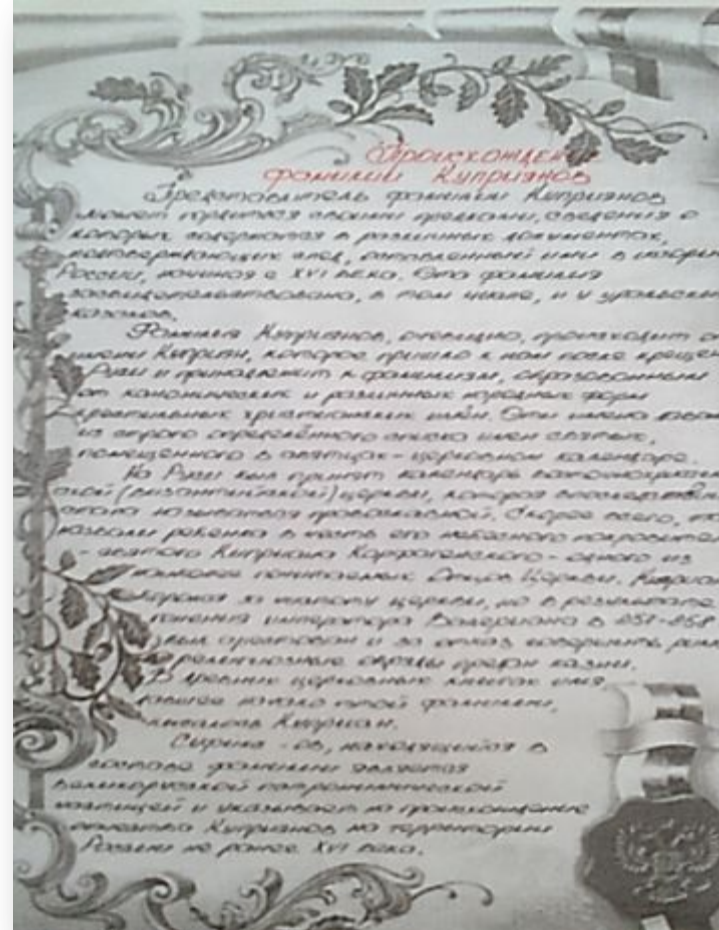 Происхождение
фамилии Куприянов
Представитель фамилии Куприянов
может гордиться своими предками, сведения о
которых содержатся в различных документах,
подтверждающих след, оставленный ими в истории
России, начиная с XVI века. Эта фамилия
засвидетельствована, в том числе, и у уральских
казаков.
Фамилия Куприянов, очевидно, происходит от
имени Куприян, которое пришло к нам после крещения
Руси и принадлежит к фамилиям, образованным
от канонических и различных народных форм
крестильных христианских имён. Эти имена
из строго определённого списка имен святых,
помещенного в святцах - церковном календаре.
На Руси был принят календарь
(византийской) церкви, которая
стала называться православной. Скорее всего,
назвали ребенка в честь его небесного покровителя
- святого Киприана Карфагенского - одного из
наиболее почитаемых Отцов Церкви. Киприан
боролся за чистоту церкви, но в результате
гонения императора Валериана в 257-258
был арестован и за отказ совершить
религиозные обряды предан казни.
В древних церковных книгах имя,
давшее начало этой фамилии,
писалось Куприан.
Суффикс - ов, находящийся в
составе фамилии является
великорусской патронимической
частицей и указывает на происхождение
семейства Куприянов на территории
России не ранее XVI века.